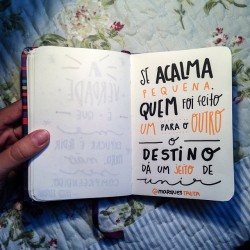 SE ACALMA
PEQUENA.
QUEM FOI FEITO
UM PARA O OUTRO
O
DESTINO
DÁ UM JEITO DE
unir